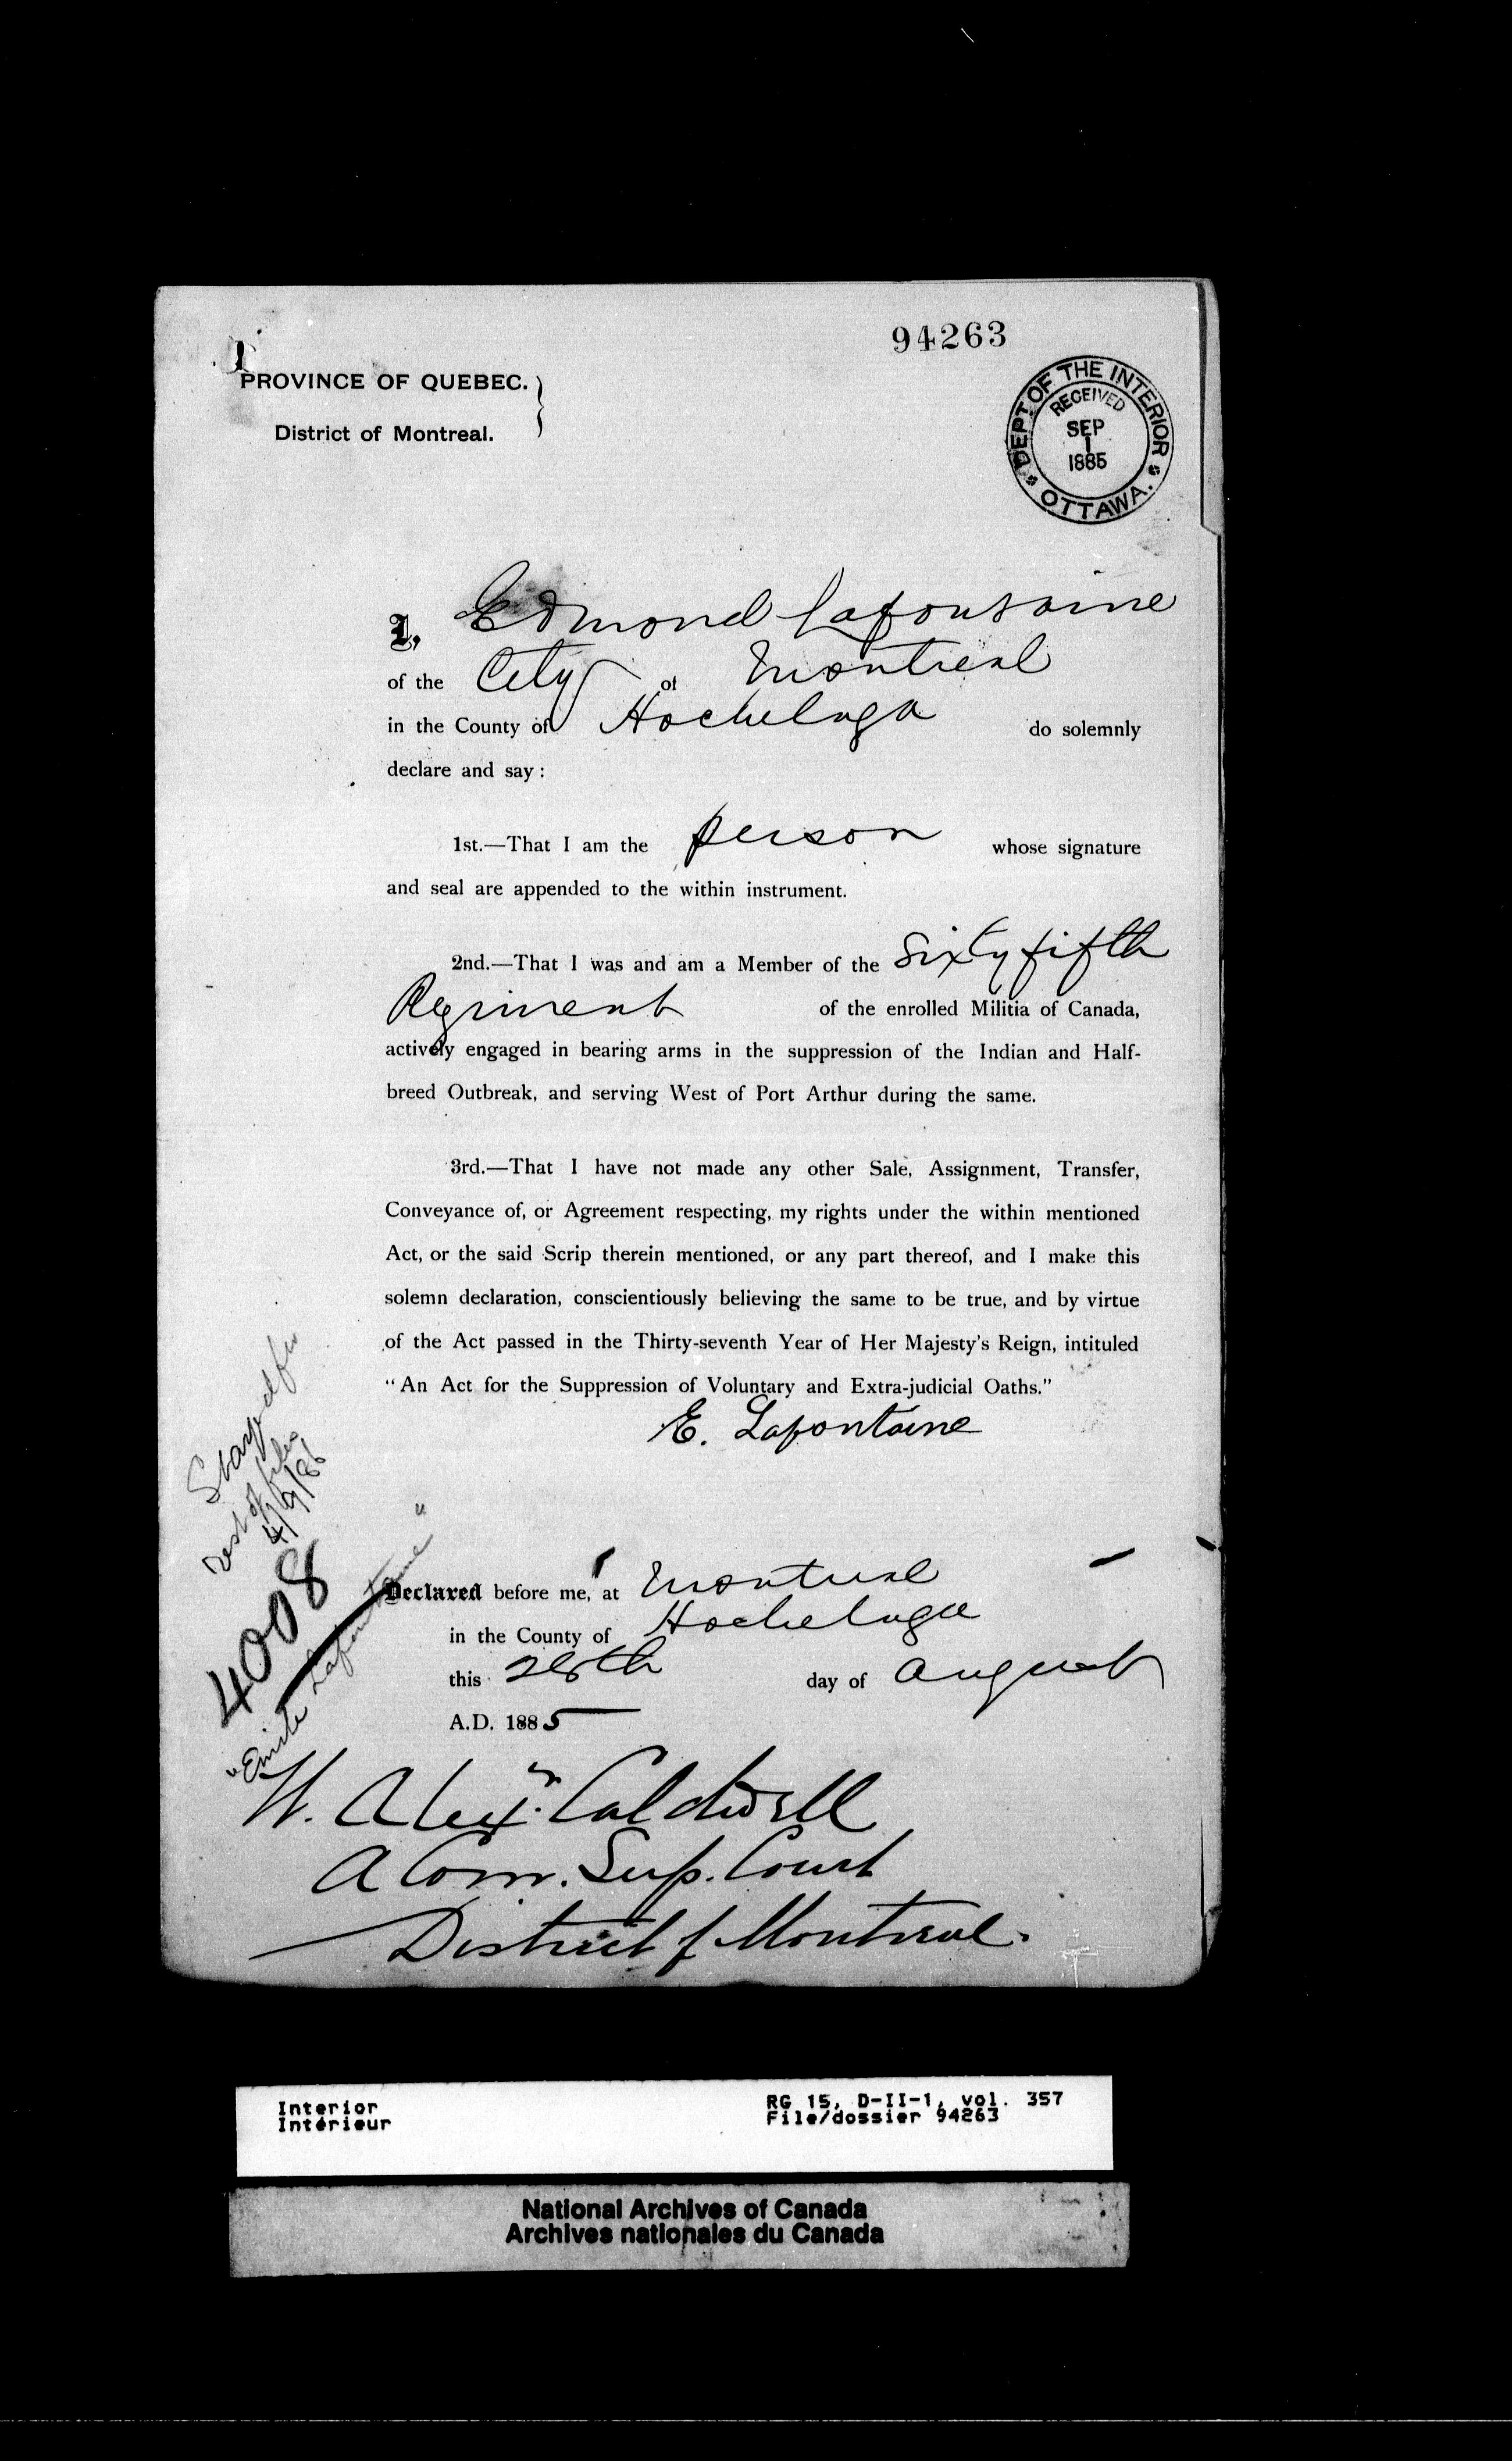 94263
PROVINCE OF QUEBEC.
District of Montreal.
DEPT. OF THE INTERIOR
RECEIVED
SEP
1
1885
OTTAWA.
I, Edmond Lafontaine
of the City of Montreal
in the County of Hochelaga do solemnly
declare and say:
1st.—That I am the person whose signature
and seal are appended to the within instrument.
2nd.—That I was and am a Member of the Sixty fifth
Regiment of the enrolled Militia of Canada,
actively engaged in bearing arms in the suppression of the Indian and Half-
breed Outbreak, and serving West of Port Arthur during the same.
3rd.—That I have not made any other Sale, Assignment, Transfer,
Conveyance of, or Agreement respecting, my rights under the within mentioned
Act, or the said Scrip therein mentioned, or any part thereof, and I make this
solemn declaration, conscientiously believing the same to be true, and by virtue
of the Act passed in the Thirty-seventh Year of Her Majesty's Reign, intituled
"An Act for the Suppression of Voluntary and Extra-judicial Oaths."
E. Lafontaine
4/9/86
4008
"Emile Lafontaine"
Declared before me, at Montreal
in the County of Hochelaga
this 28th day of August
A.D. 1885
W. Alexr. Caldwell
A Com. Sup. Court
District of Montreal.
Interior
Intérieur
RG 15, D-II-1, vol. 357
File/dossier 94263
National Archives of Canada
Archives nationales du Canada